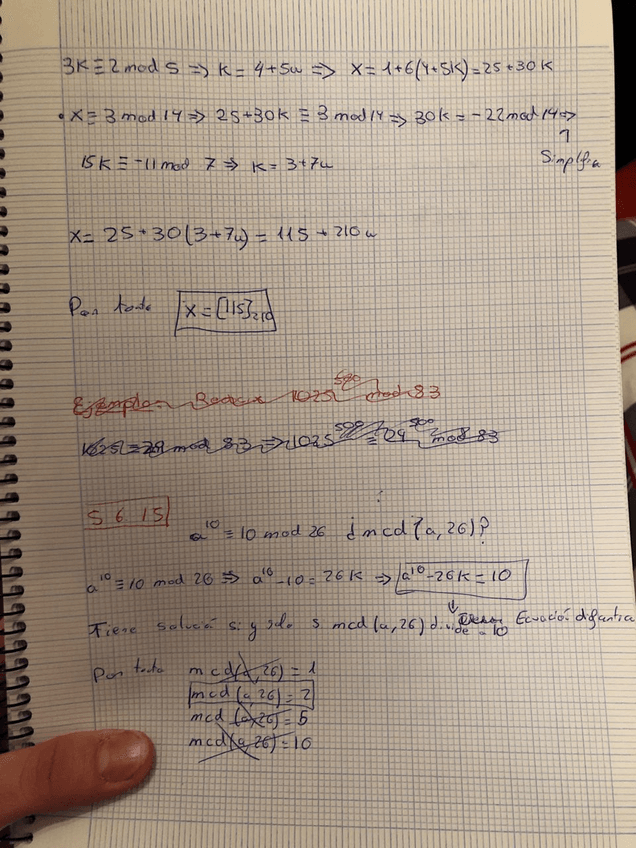 3K ≡ 2 mod 5 ⇒ K = 4+5u ⇒ x = 1+6(4+5K) = 25+30K
• x ≡ 3 mod 14 ⇒ 25+30K ≡ 3 mod 14 ⇒ 30K = -22 mod 14 ⇒
Simplifica
15K ≡ -11 mod 7 ⇒ K = 3+7u
x = 25+30(3+7u) = 115 + 210u
Por tanto x = [115]₂₁₀
Ejemplo: 1025⁵⁰⁰ mod 83
1025 ≡ 29 mod 83 ⇒ 1025⁵⁰⁰ ≡ 29⁵⁰⁰ mod 83
5 6 15
a¹⁰ ≡ 10 mod 26 ¿mcd(a,26)?
a¹⁰ ≡ 10 mod 26 ⇒ a¹⁰-10 = 26K ⇒ a¹⁰-26K = 10
↓
Tiene solución si y solo si mcd(a,26) divide a 10 Ecuación difantica
Por tanto mcd(a,26) = 1
mcd(a,26) = 2
mcd(a,26) = 5
mcd(a,26) = 10